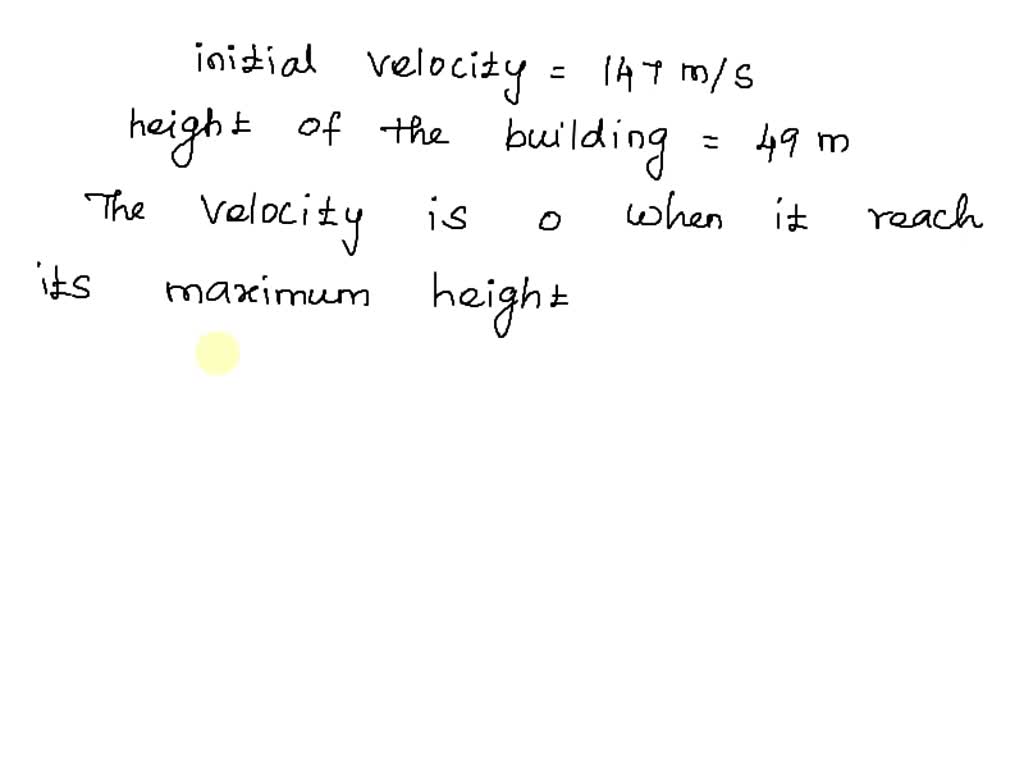 initial velocity = 147 m/s
height of the building = 49 m
The velocity is 0 when it reach
its maximum height